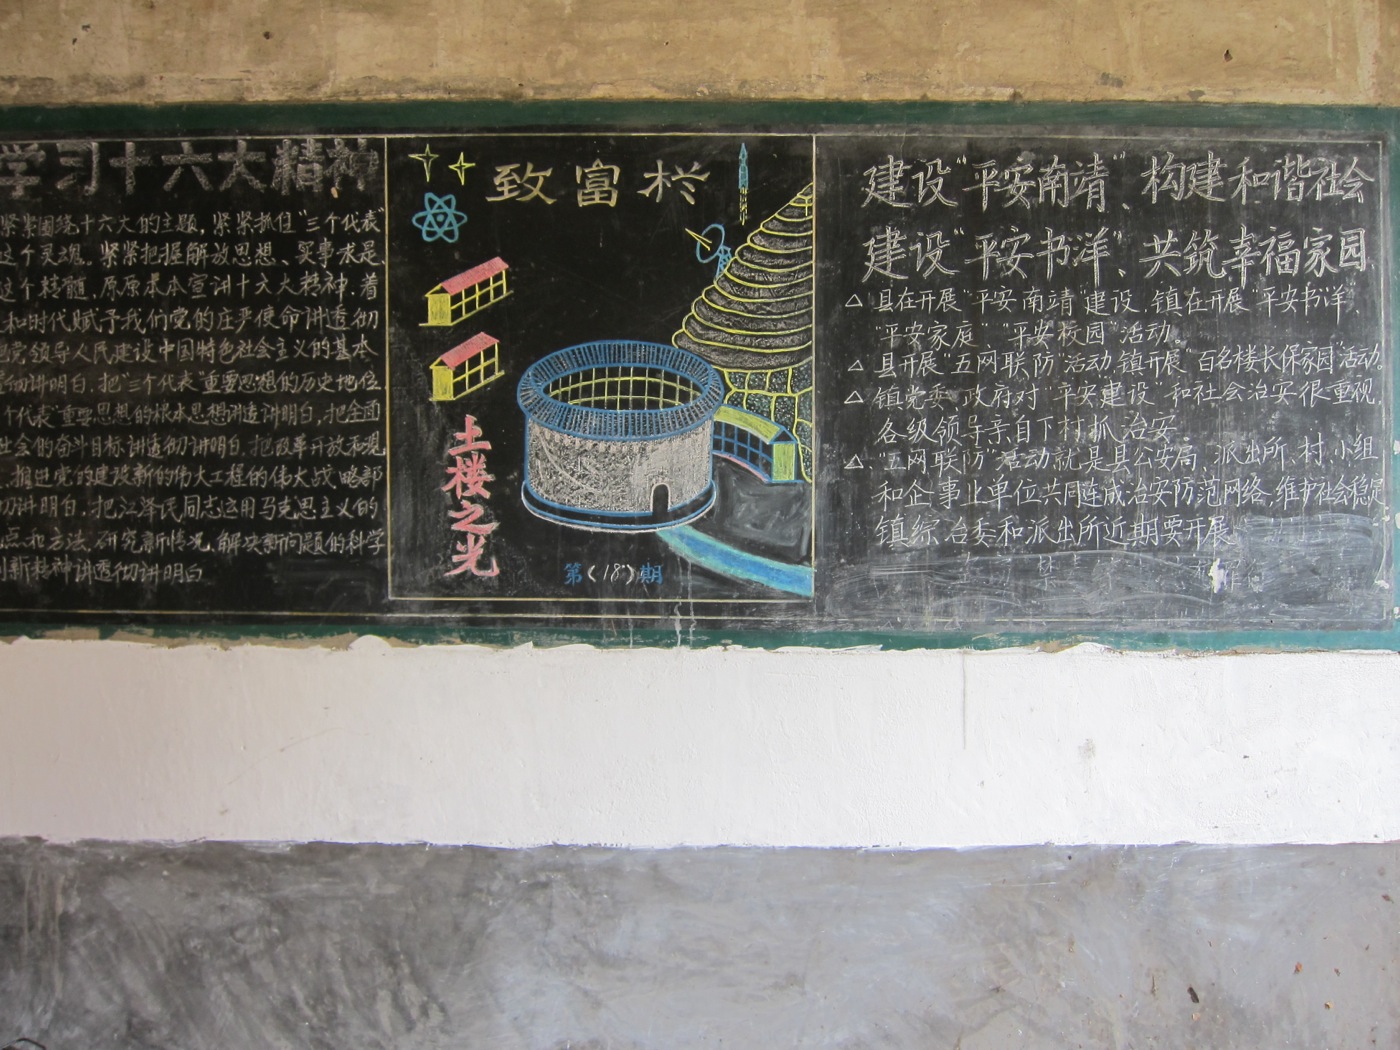 学习十六大精神
紧紧围绕十六大的主题，紧紧抓住"三个代表"
这个灵魂，紧紧把握解放思想、实事求是
这个精髓，原原本本宣讲十六大精神，着
和时代赋予我们党的庄严使命讲透彻
党领导人民建设中国特色社会主义的基本
彻讲明白，把"三个代表"重要思想的历史地位
个代表"重要思想的根本思想讲透讲明白，把全面
社会的奋斗目标讲透彻讲明白，把改革开放和现
推进党的建设新的伟大工程的伟大战略部
讲明白，把江泽民同志运用马克思主义的
点和方法，研究新情况，解决新问题的科学
新精神讲透彻讲明白
致富栏
土楼之光
第(18)期
建设"平安南靖"、构建和谐社会
建设"平安书洋"、共筑幸福家园
△县在开展"平安南靖"建设，镇在开展"平安书洋"，
"平安家庭" "平安校园"活动。
△县开展"五网联防"活动，镇开展"百名楼长保家园"活动。
△镇党委、政府对"平安建设"和社会治安很重视，
各级领导亲自下村抓治安
△"五网联防"活动就是县公安局、派出所、村、小组
和企事业单位共同连成治安防范网络，维护社会稳定
镇综治委和派出所近期要开展